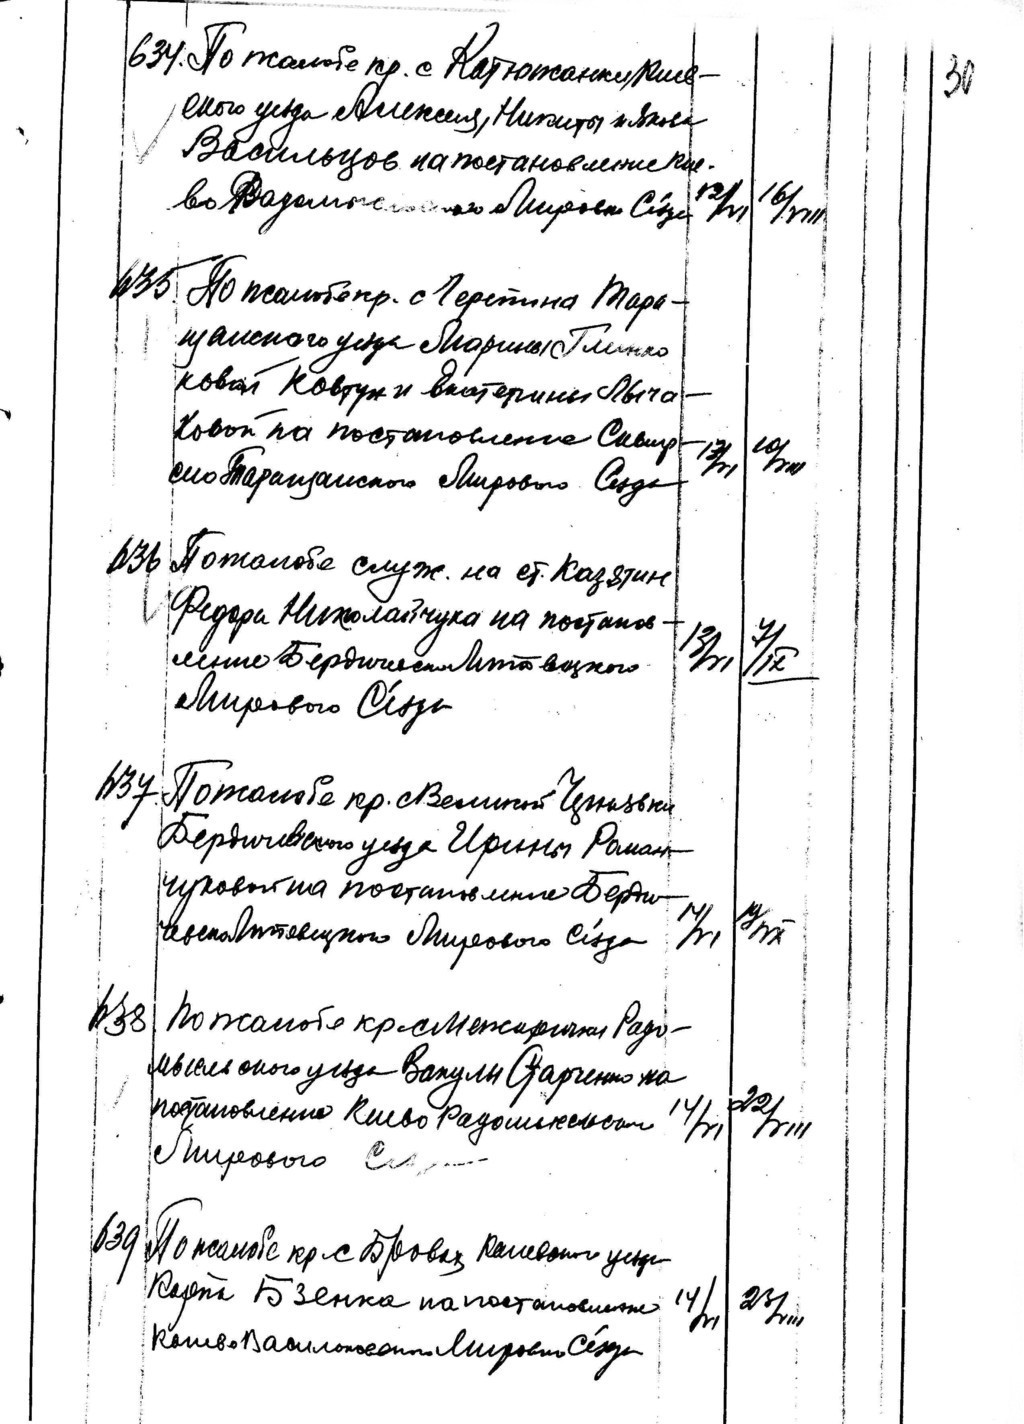 30
634. По жалобе кр. с Катюжанки, Киев-
ского уезда Алексея, Никиты и Якова
Васильцов на постановление Кие-
во Радомысльского Мирового Съезда 12/VI 16/VIII
635. По жалобе кр. с Черепина Тара-
щанского уезда Марины
ковой Ковтун и Екатерины Лыча-
ковой на постановление Сквир-
ско Таращанского Мирового Съезда 13/VI 10/VIII
636 По жалобе служ. на ст. Казятин
Федора Николайчука на постанов-
ление Бердическо Липовецкого 13/VI 7/IX
Мирового Съезда
637. По жалобе кр. с Великой
Бердичевского уезда Ирины Роман-
чуковой на постановление Берди-
ческо Липовецкого Мирового Съезда 14/VI 19/IX
638 По жалобе кр. с Межирички Радо-
мысльского уезда Вакулы Старченко на
постановление Киево Радомысльского 14/VI 22/VIII
Мирового
639 По жалобе кр. с Бровах Каневского уезда
Карпа Бзенка на постановление 14/VI 23/VIII
Канево Васильковского Мирового Съезда